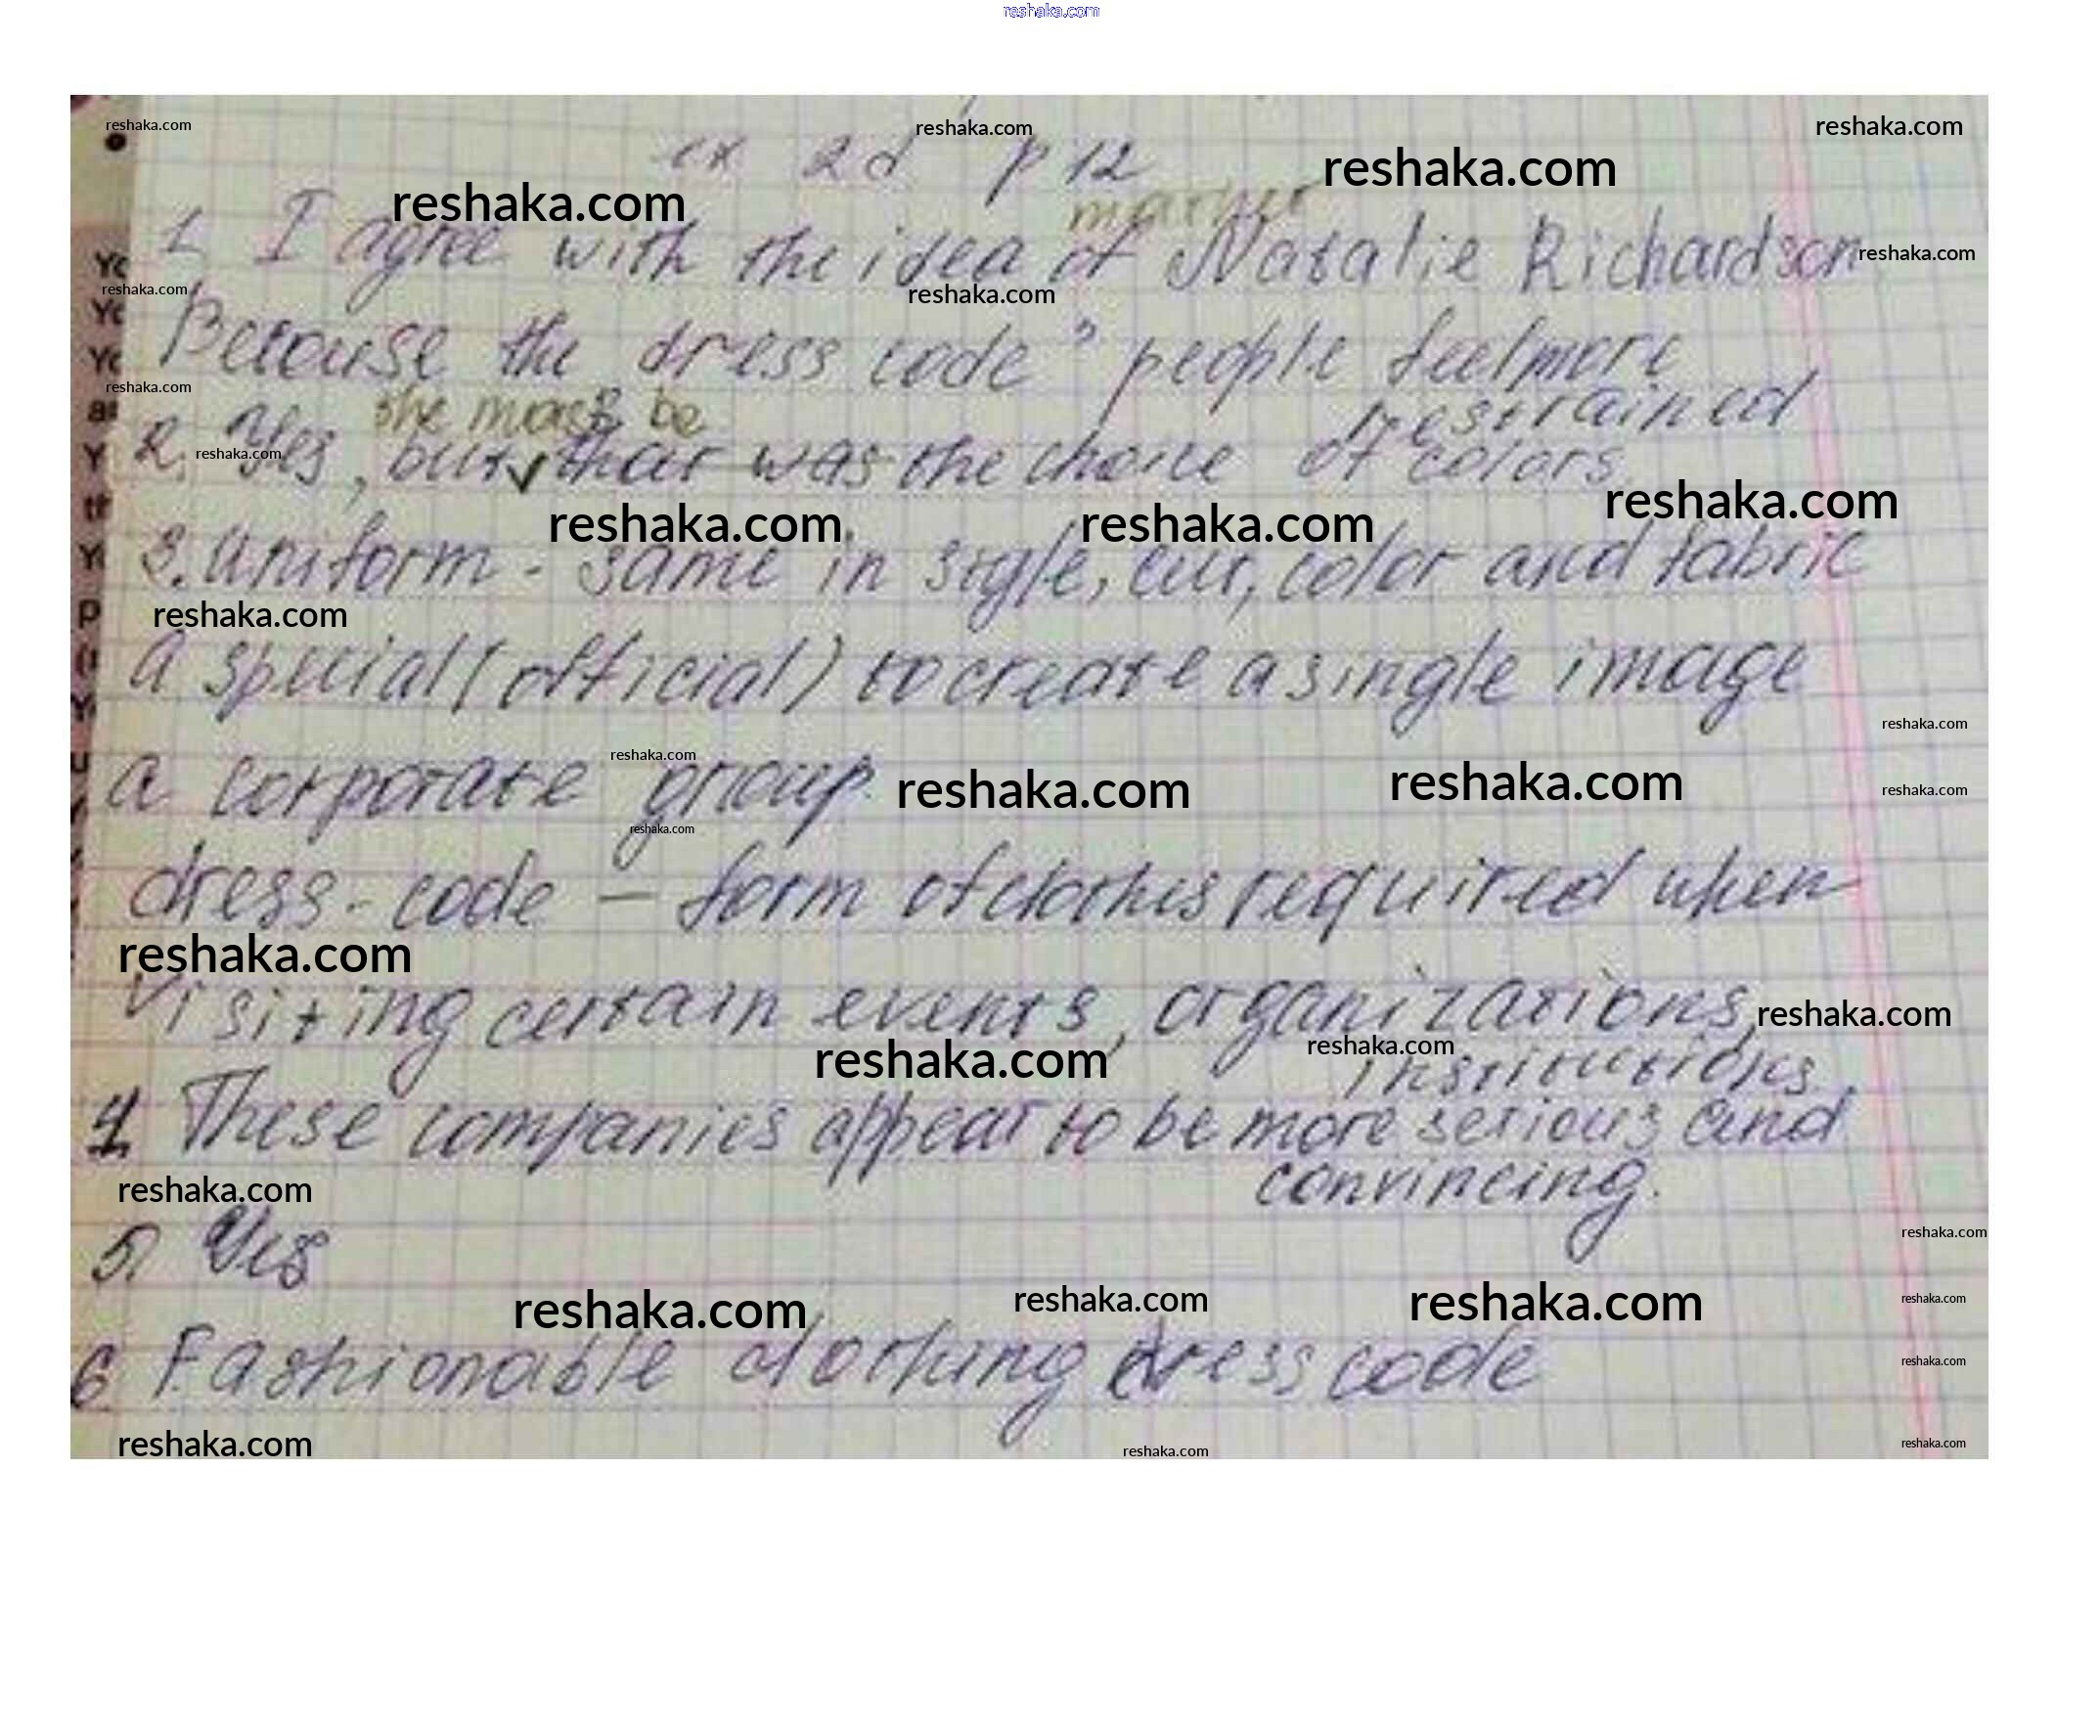 reshaka.com
reshaka.com reshaka.com reshaka.com
ex 2d p 12
reshaka.com reshaka.com
1. I agree with the idea of Natalie Richardson
reshaka.com reshaka.com reshaka.com
Because the dress code people feel more
restrained
reshaka.com
she must be
2. Yes, but that was the choice of colors
reshaka.com
reshaka.com reshaka.com reshaka.com
3. Uniform - same in style, cut, color and fabric
reshaka.com
a special (official) to create a single image
reshaka.com
a corporate group
reshaka.com reshaka.com reshaka.com reshaka.com
reshaka.com
dress-code – form of clothes required when
reshaka.com
visiting certain events, organizations,
reshaka.com
institutions
reshaka.com reshaka.com
4. These companies appear to be more serious and
convincing.
reshaka.com
5. Yes
reshaka.com
reshaka.com reshaka.com reshaka.com reshaka.com
6. Fashionable clothing dress code
reshaka.com
reshaka.com reshaka.com reshaka.com